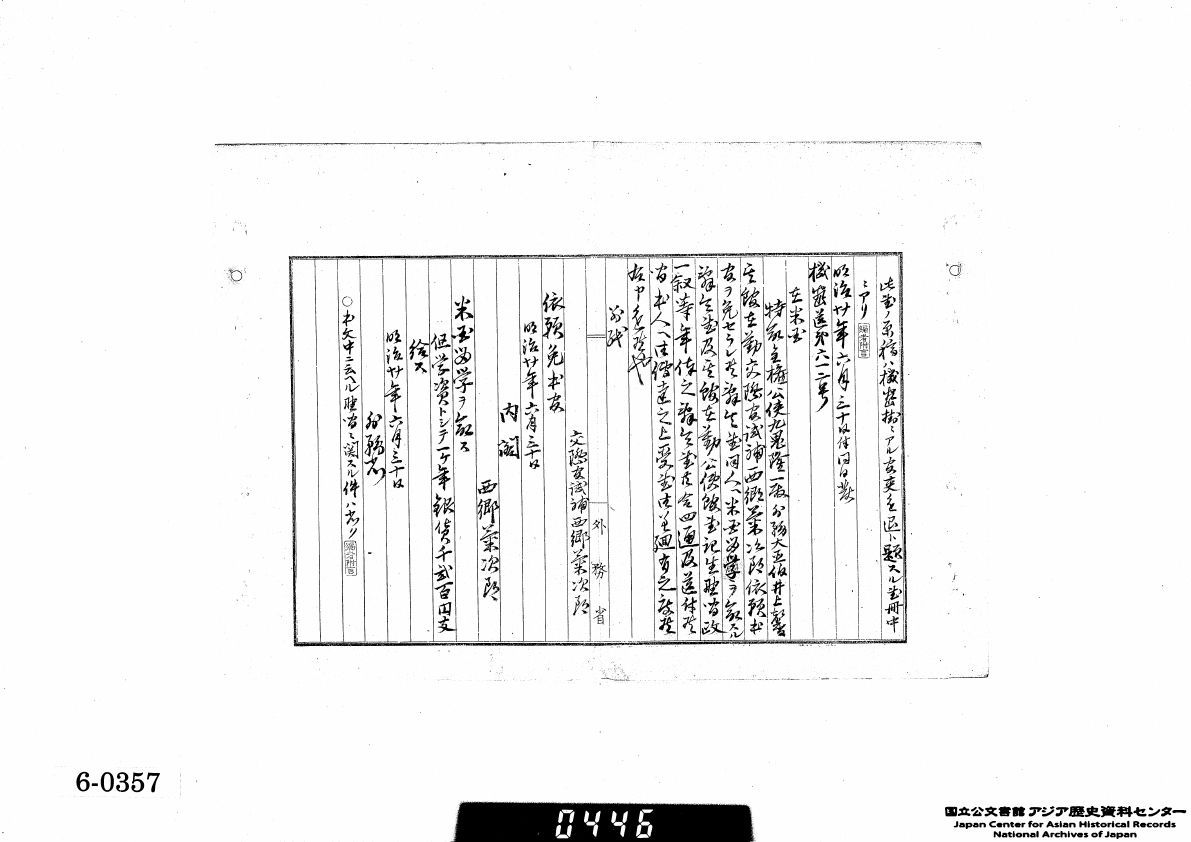 此書ノ原稿ハ機密掛ニアル官吏進退ト題スル書冊中
ニアリ 編者附言
明治廿年六月三十日付同日発
機密送第六一二号
在米国
特命全権公使九鬼隆一殿 外務大臣伯井上馨
其館在勤交際官試補西郷菊次郎依願本
官ヲ免セラレ候辞令書同人ヘ米国留学ヲ命スル
辞令書及其館在勤公使館書記生野間政
一叙等年俸之辞令書共合四通及送付候
間本人ヘ御伝達之上受書御差廻有之度候
右申進候也
別紙
交際官試補西郷菊次郎
依願免本官
明治廿年六月三十日
内閣
西郷菊次郎
米国留学ヲ命ス
但学資トシテ一ケ年銀貨千弐百円支
給ス
明治廿年六月三十日
外務省
○本文中ニ云ヘル野間ニ関スル件ハ略ス 編者附言
外務省
6-0357
0446
国立公文書館 アジア歴史資料センター
Japan Center for Asian Historical Records
National Archives of Japan